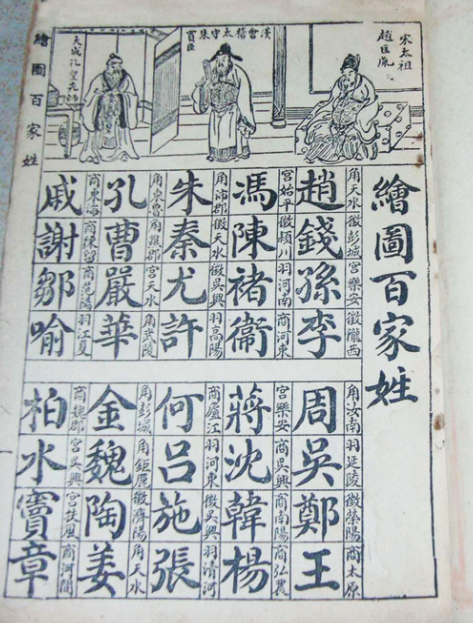 繪圖百家姓
宋太祖
趙匡胤
漢會稽太守朱
買臣
角天水 徵彭城 宮樂安 徵隴西
趙錢孫李
宮始平 徵潁川 羽河南 商河東
馮陳褚衛
角沛郡 徵天水 徵吳興 羽高陽
朱秦尤許
角東魯 角譙郡 宮天水 角武陵
孔曹嚴華
商東海 商陳留 商范陽 羽江夏
戚謝鄒喻
角汝南 羽延陵 徵滎陽 商太原
周吳鄭王
宮樂安 商吳興 商南陽 商弘農
蔣沈韓楊
商廬江 羽河東 徵吳興 羽清河
何呂施張
角彭城 角鉅鹿 徵濟陽 角天水
金魏陶姜
商魏郡 宮吳興 宮扶風 商河間
柏水竇章
繪圖百家姓